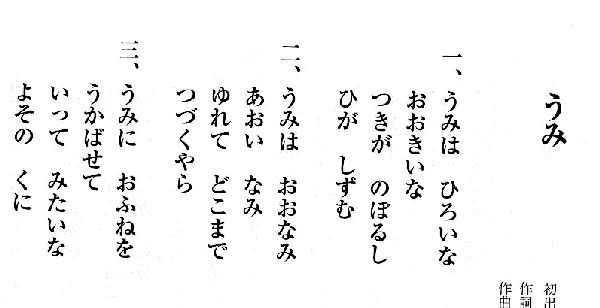 うみ
初出
作詞
作曲
一、うみは　ひろいな
おおきいな
つきが　のぼるし
ひが　しずむ
二、うみは　おおなみ
あおい　なみ
ゆれて　どこまで
つづくやら
三、うみに　おふねを
うかばせて
いって　みたいな
よその　くに